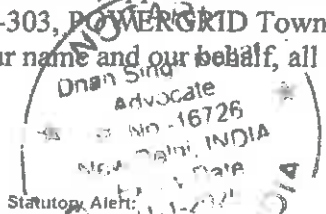 -303, POWERGRID Town
ur name and our behalf, all
Singh
Advocate
No -16726
Delhi, INDIA
Date
Statutory Alert: